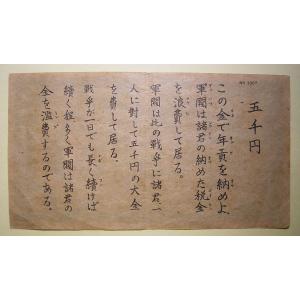 NO 2007
五千円
この金で年貢を納めよ
軍閥は諸君の納めた税金
を浪費して居る。
軍閥は此の戦爭に諸君一
人に對して五千円の大金
を費して居る。
戦爭が一日でも長く續けば
續く程多く軍閥は諸君の
金を濫費するのである。